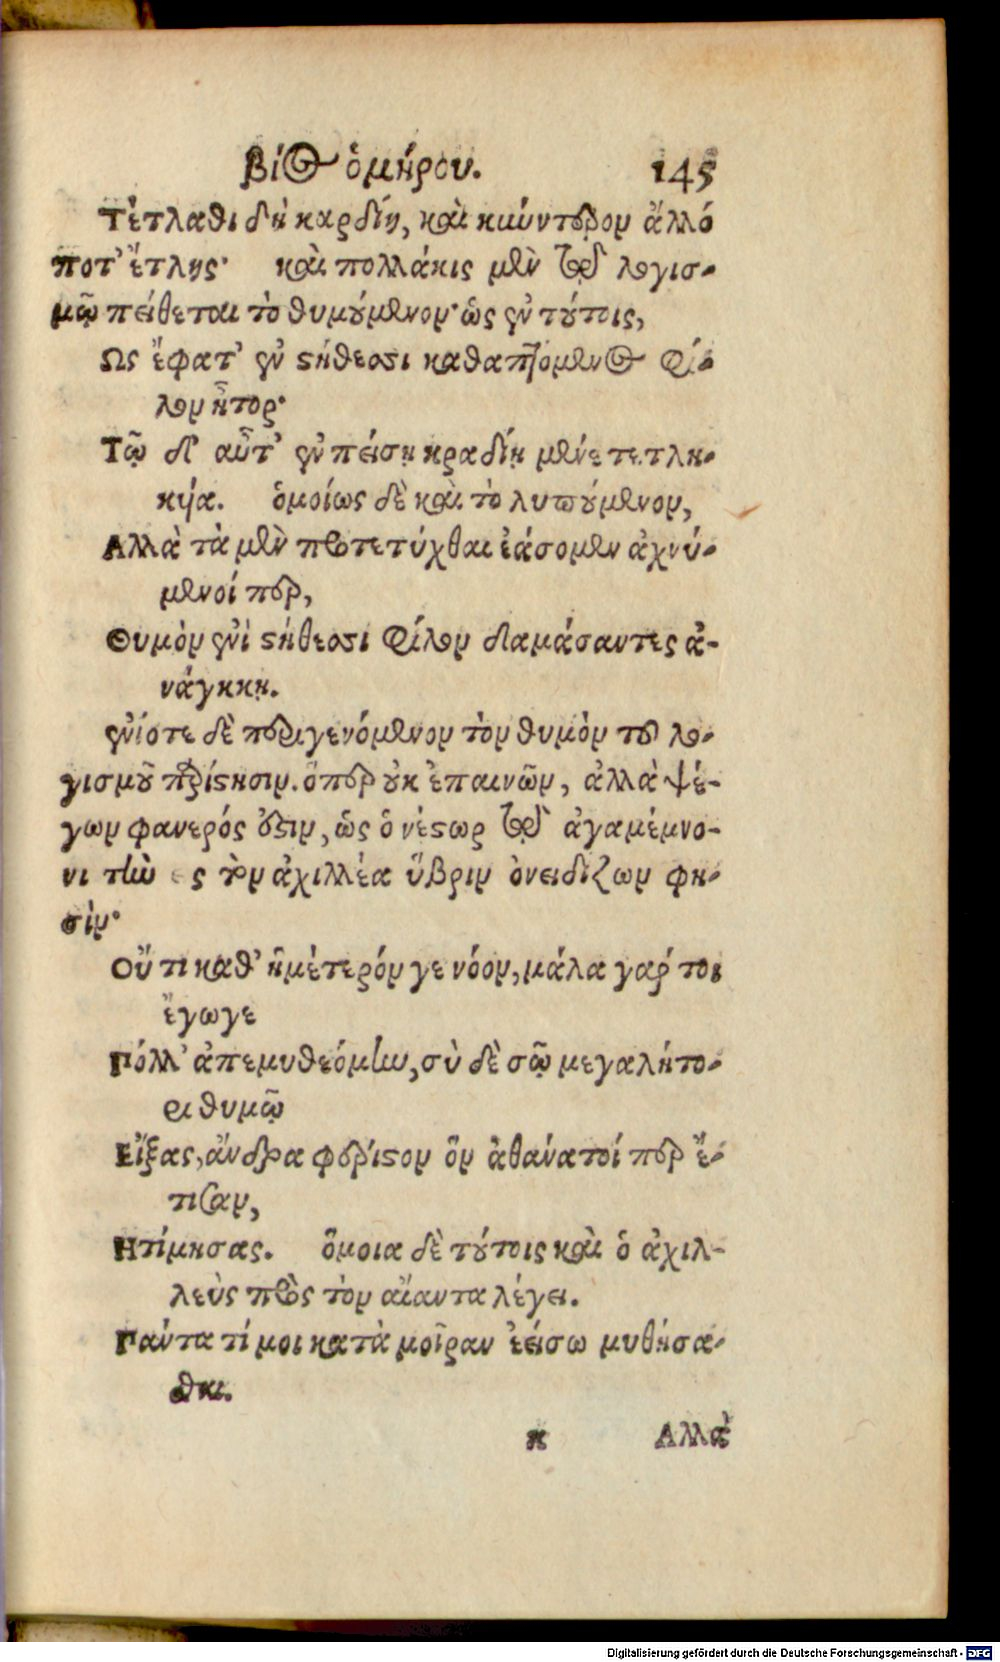 βίος ὁμήρου. 145
Τέτλαθι δὴ καρδίη, καὶ κιώντερον ἄλλό
ποτ' ἔτλης· καὶ πολλάκις μὲν τῷ λογισ-
μῷ πείθεται τὸ θυμούμενον· ὡς ἐν τούτοις,
Ως ἔφατ' ἐν στήθεσσι καθαπτόμενος φί-
λον ἦτορ·
Τῷ δ' αὖτ' ἐν πείσῃ κραδίη μένε τετλη-
κυῖα. ὁμοίως δὲ καὶ τὸ λυπούμενον,
Αλλὰ τὰ μὲν προτετύχθαι ἐάσομεν ἀχνύ-
μενοί περ,
Θυμὸν ἐνὶ στήθεσσι φίλον δαμάσαντες ἀ-
νάγκῃ.
ἐνίοτε δὲ περιγενόμενον τὸν θυμὸν τοῦ λο-
γισμοῦ παρίστησιν. ὅπερ οὐκ ἐπαινῶν, ἀλλὰ ψέ-
γων φανερός ἐστιν, ὡς ὁ νέστωρ τῷ ἀγαμέμνο-
νι τὴν ες τὸν ἀχιλλέα ὕβριν ὀνειδίζων φη-
σίν·
Οὔτι καθ' ἡμέτερόν γε νόον, μάλα γάρ τοι
ἔγωγε
Πόλλ' ἀπεμυθεόμην, σὺ δὲ σῷ μεγαλήτο-
ρι θυμῷ
Εἴξας, ἄνδρα φέριστον ὃν ἀθάνατοί περ ἔ-
τισαν,
Ητίμησας. ὅμοια δὲ τούτοις καὶ ὁ ἀχιλ-
λεὺς πρὸς τὸν αἴαντα λέγει.
Πάντα τί μοι κατὰ μοῖραν ἐείσω μυθήσα-
σθαι.
κ Αλλά
Digitalisierung gefördert durch die Deutsche Forschungsgemeinschaft - DFG